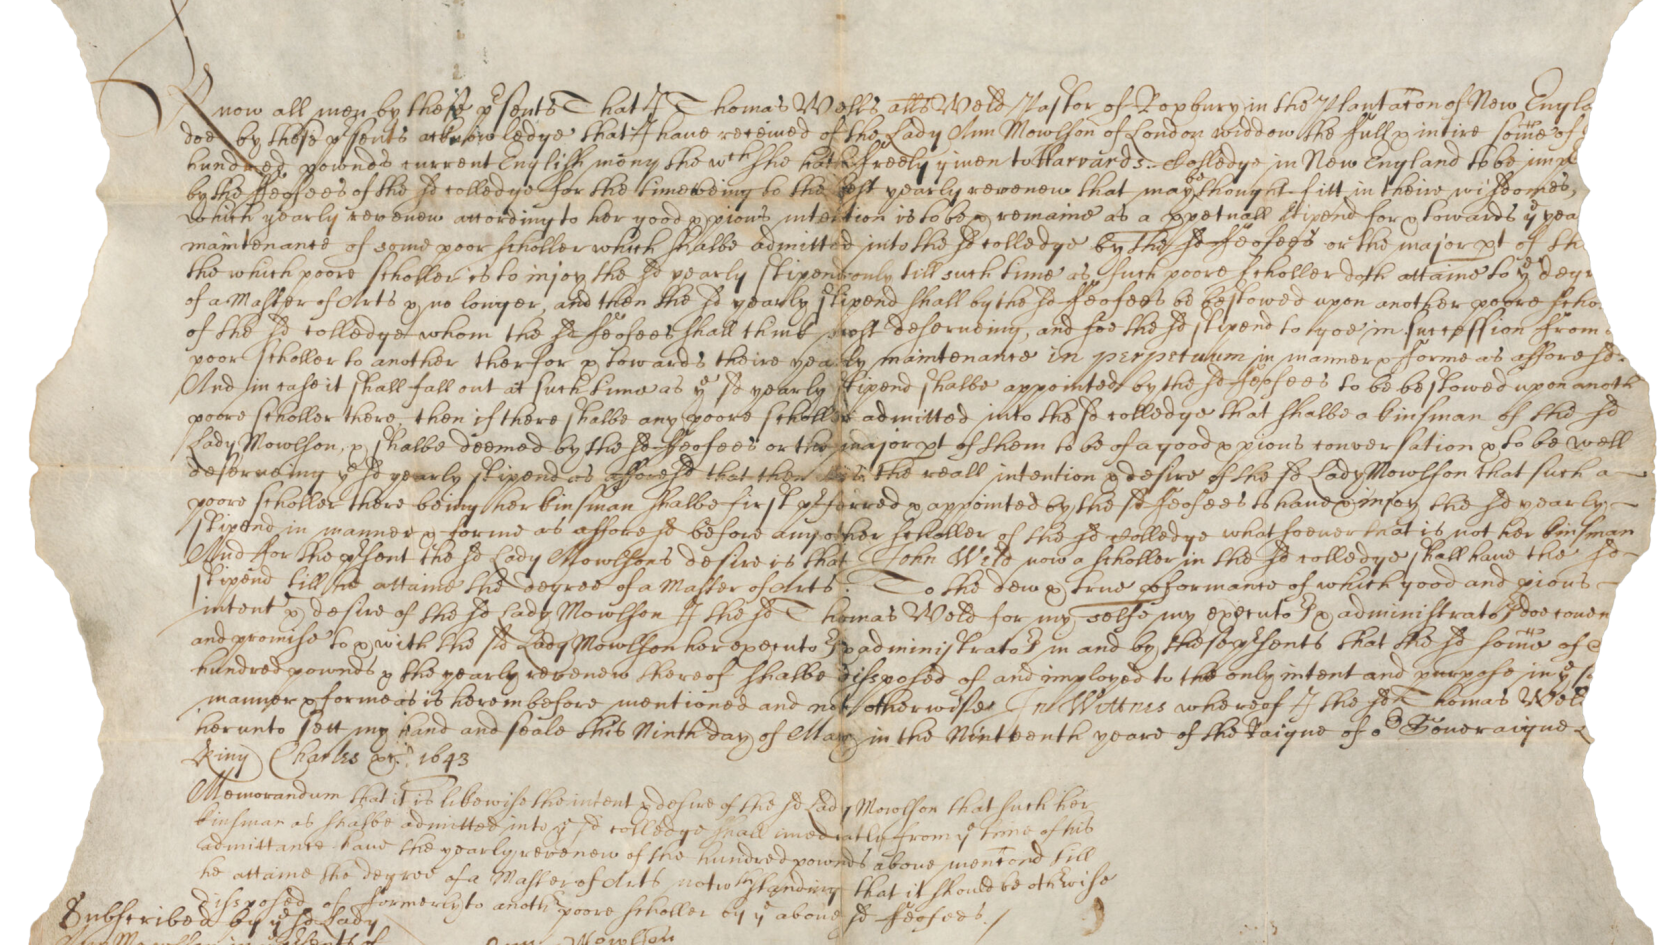 Know all men by these p'sents That I Thomas Wells alis Weld Pastor of Roxbury in the Plantacon of New Engla
doe by these p'sents acknowledge that I have received of the Lady Ann Mowlson of London widdow the full & intire some of
hundred pownds current English mony the wch she hath freely given to Harvards Colledge in New England to be impl
by the ffeofees of the sd colledge for the time being to the best yearly revenew that may be thought fitt in theire wisdomes,
which yearly revenew according to her good & pious intention is to be & remaine as a ppetuall stipend for & towards ye yea
maintenance of some poor scholler which shalbe admitted into the sd colledge by the sd ffeofees or the major pt of th
the which poore scholler is to injoy the sd yearly stipend only till such time as such poore scholler doth attaine to ye degr
of a Master of Arts & no longer, and then the sd yearly stipend shall by the sd ffeofees be bestowed upon another poore scho
of the sd colledge whom the sd ffeofees shall think most deserveing, and soe the sd stipend to goe in succession from
poor scholler to another therfor & towards theire yearly maintenance in perpetuum in manner & forme as afforesd.
And in case it shall fall out at such time as ye sd yearly stipend shalbe appointed by the sd ffeofees to be bestowed upon anoth
poore scholler there, then if there shalbe any poore scholler admitted into the sd colledge that shalbe a kinsman of the sd
Lady Mowlson, & shalbe deemed by the sd ffeofees or the major pt of them to be of a good & pious conversation & to be well
deserveing ye sd yearly stipend as afforesd that then the reall intention & desire of the sd Lady Mowlson that such a
poore scholler there being her kinsman shalbe first p'ferred & appointed by the sd ffeofees to have & injoy the sd yearly
stipend in manner & forme as afforesd before any other scholler of the sd colledge whatsoever that is not her kinsman
And for the p'sent the sd Lady Mowlsons desire is that John Weld now a scholler in the sd colledge shall have the sd
stipend till he attaine the degree of a Master of Arts: To the dew & true pformance of which good and pious
intent & desire of the sd Lady Mowlson I the sd Thomas Weld for my selfe my executors & administrators doe coven
and promise to & with the sd Lady Mowlson her executors & administrators in and by these p'sents that the sd some of
hundred pownds & the yearly revenew thereof shalbe disposed of and imployed to the only intent and purpose in ye sd
manner & forme as is herein before mentioned and not otherwise. In Wittnes whereof I the sd Thomas Wel
herunto sett my hand and seale this Ninth day of May in the Ninteenth yeare of the Raigne of or Soveraigne
King Charles &c. 1643
Memorandum that it is likewise the intent & desire of the sd Lady Mowlson that such her
kinsman as shalbe admitted into ye sd colledge shall imediatly from ye time of his
admittance have the yearly revenew of the hundred pownds above mentiond till
he attaine the degree of a Master of Arts notwthstanding that it should be othrwise
disposed of formerly to anothr poore scholler by ye above sd ffeofees./
Subscribed by ye sd Lady
Ann Mowlson in p'sents of
Mowlson